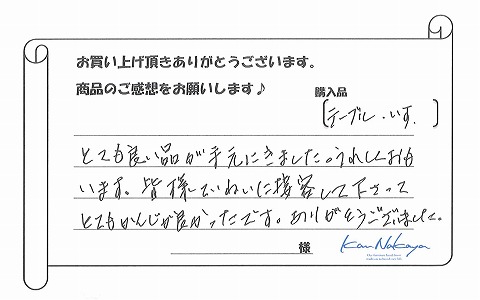 お買い上げ頂きありがとうございます。
商品のご感想をお願いします♪
購入品
[テーブル・いす.]
とても良い品が手元にきました。うれしくおも
います。皆様ていねいに接客して下さって
とてもかんじが良かったです。ありがとうございました。
様
Kan Nakaya